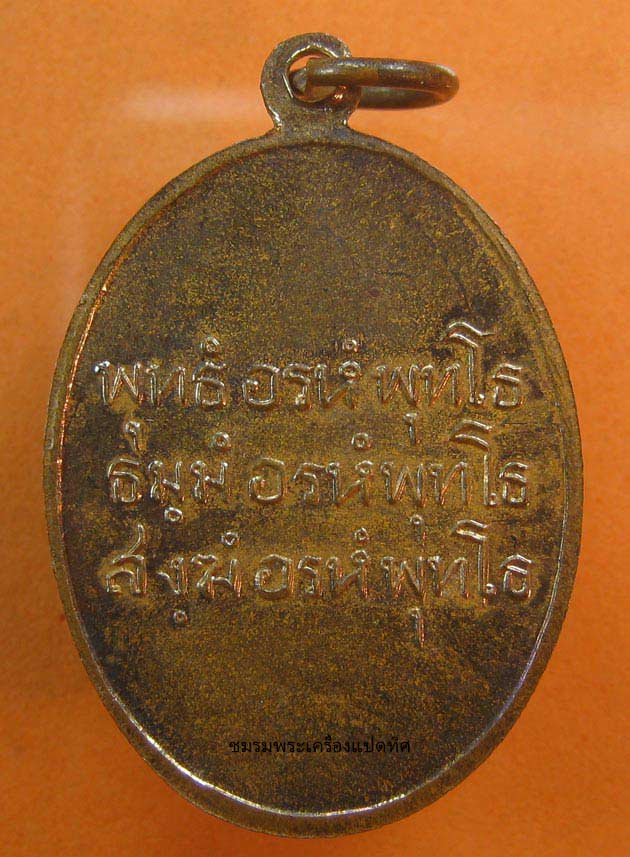 พุทธํ อรหํ พุทโธ
ธมฺมํ อรหํ พุทโธ
สงฺฆํ อรหํ พุทโธ
ชมรมพระเครื่องแปดทิศ